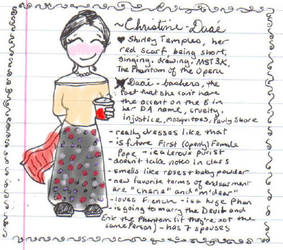 ~Christine Daaé
♥ Shirley Temples, her
red scarf, being short,
singing, drawing, MST3K,
The Phantom of the Opera
Daaé-bashers, the
fact that she can't have
the accent on the E in
her DA name, cruelty,
injustice, mosquitoes, Pauly Shore
- really dresses like that
- is future First (openly) Female
Pope - is a Leroux purist
- doesn't take notes in class
- smells like roses + baby powder
- new favorite terms of endearment
are "cheri" and "m'dear"
- loves French - is a huge Phan
- is going to marry the Devil and
Erik the Phantom (if they're not the
same person) - has 7 spouses